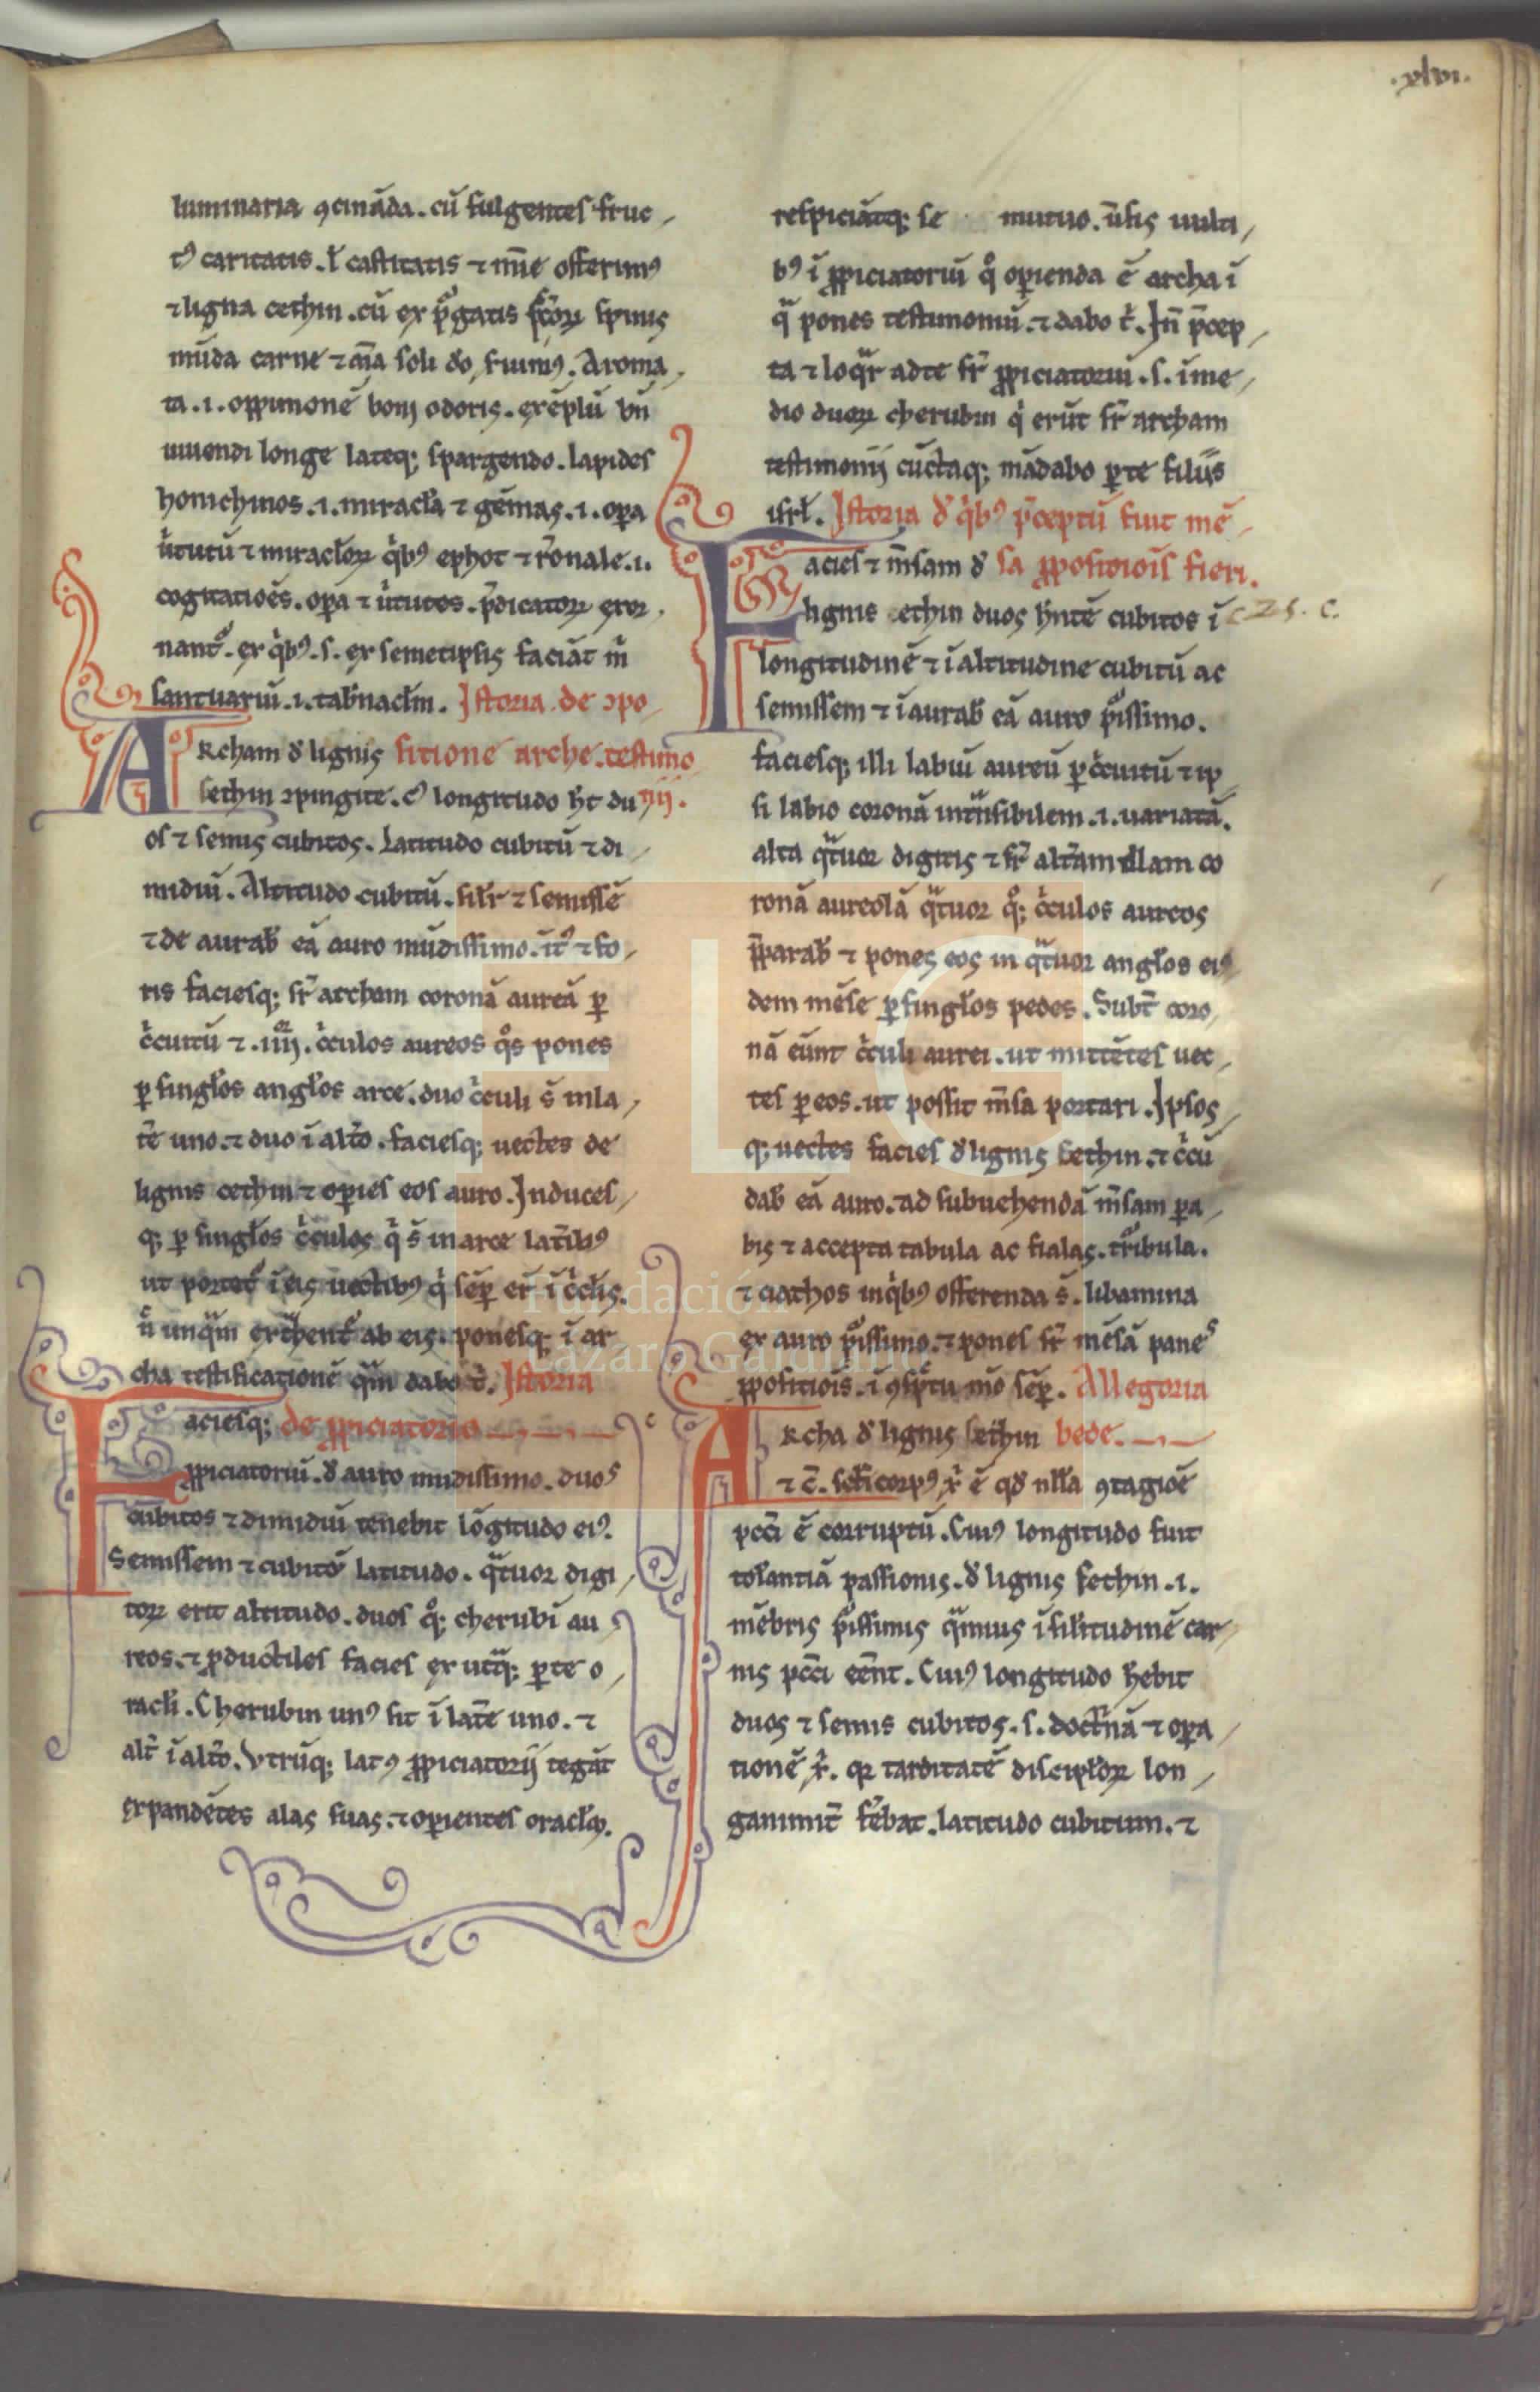 .xlvi.
luminaria ꝯcināda. cū fulgentes fruc-
tꝰ caritatis. ł castitatis ⁊ mīe offerimꝰ
⁊ ligna cethin. cū ex ꝓgatis scōꝝ spinis
mūda carne ⁊ aīa soli do
Aroma-
ta .i. oppinionē boni odoris. exēplū bn̄
uiuendi longe lateqꝫ spargendo. lapides
honichinos .i. miracła ⁊ gēmas .i. opa
ꝟtutū ⁊ miracłoꝝ qͥbꝰ ephot ⁊ rōnale .i.
cogitatiōes. opa ⁊ ꝟtutes. p̄dicatoꝝ exor-
nant᷑. ex qͥbꝰ .s. ex semetipsis faciāt m̄
santuariū .i. tab̄nacłm. Istoria de ɔpo-
Archam đ lignis sitione arche testimo
sethin ɔpingite. cꝰ longitudo hēt du nii.
os ⁊ semis cubitos. Latitudo cubitū ⁊ di-
midiū. Altitudo cubitū. siłr ⁊ semissē
⁊ de aurab̄ eā auro mūdissimo. ītꝰ ⁊ fo-
ris faciesqꝫ sr̄ archam coronā aureā ꝑ
cͥcuitū ⁊ .iiii. cͥculos aureos qͦs pones
ꝑ singłos angłos arce. duo cͥculi s̄ in la-
tē uno. ⁊ duo ī altō. faciesqꝫ uectes de
lignis cethin ⁊ opies eos auro. Induces-
qꝫ ꝑ singłos cͥculos qͥ s̄ in arce latībꝰ
ut portet᷑ ī eis uectibꝰ qͥ sēp er̄ ī cͥcłis.
n̄ unqᷓm exͭhent᷑ ab eis. ponesqꝫ ī ar
cha testificationē qᷓm dabo t̄. Istoria
Faciesqꝫ de ꝓpiciatorio
ꝓpiciatoriū. đ auro mudissimo. duos
cubitos ⁊ dimidiū tenebit lōgitudo eiꝰ.
Semissem ⁊ cubitō latitudo. qᷓtuor digi-
toꝝ erit altitudo. duos qͦꝫ cherubī au
reos. ⁊ ꝓductiles facies ex utᷓqꝫ ꝑte o-
racłi. Cherubin unꝰ sit ī latē uno. ⁊
alt̄ ī altō. Vtrūqꝫ latꝰ ꝓpiciatorii tegāt
expandētes alas suas. ⁊ opientes oracłm.
respiciātqꝫ se mutuo. ūsis uulti-
bꝰ ī ꝓpiciatoriū qͦ opienda ē archa ī
qᷓ pones testimoniū. ⁊ dabo t̄. In̄ p̄cep-
ta ⁊ loqᷓr ad te sr̄ ꝓpiciatoriū .s. ī me-
dio duoꝝ cherubin qͥ erūt sr̄ archam
testimonii cūctaqꝫ mādabo ꝑ te filiis
isrł. Istoria đ qͥbꝰ p̄ceptū fuit mē-
Facies ⁊ m̄sam đ sa ꝓpositiōis fieri.
lignis cethin duos hn̄tē cubitos ī c. 25. c.
longitudinē ⁊ ī altitudine cubitū ac
semissem ⁊ ī aurab̄ eā auro pͥssimo.
faciesqꝫ illi labiū aureū ꝑ cͥcuitū ⁊ ip-
si labio coronā intͬrasibilem .i. uariatā.
alta qᷓtuor digitis ⁊ sr̄ altāam illam co
ronā aureolā qᷓtuor qͦꝫ cͥculos aureos
p̄parab̄ ⁊ pones eos in qᷓtuor angłos eiꝰ
dem mēse ꝑ singłos pedes. Subt̄ coro-
nā eūnt cͥculi aurei. ut mittētes uec-
tes ꝑ eos. ut possit m̄sa portari. Ipsos-
qꝫ uectes facies đ lignis Sethin. ⁊ cͥcū
dab̄ eā auro. ad subuehendā m̄sam pa-
bis ⁊ accepta tabula ac fialas. tͥribula.
⁊ ciathos in qͥbꝰ offerenda s̄. libamina
ex auro pͥssimo. ⁊ pones sr̄ mēsā panes
ꝓpositiōis. ī ꝯspctu mō sēp. Allegoria
Archa đ lignis sethin bede.
⁊ c̄. scł̄i corpꝰ xͥ ē qđ nłła ꝯtagiōē
pcc̄i ē corruptū. Cuiꝰ longitudo fuit
tołantiā passionis. đ lignis sethin .i.
mēbris pͥssimis qᷓmuis ī siłitudinē car-
nis pcc̄i eēnt. Cuiꝰ longitudo hēbit
duos ⁊ semis cubitos .s. doctͥnā ⁊ opa-
tionē xͥ. qꝛ tarditatē discipłoꝝ lon-
ganimit̄ fēbat. latitudo cubitum. ⁊
FLG
Fundación
Lázaro Galdiano